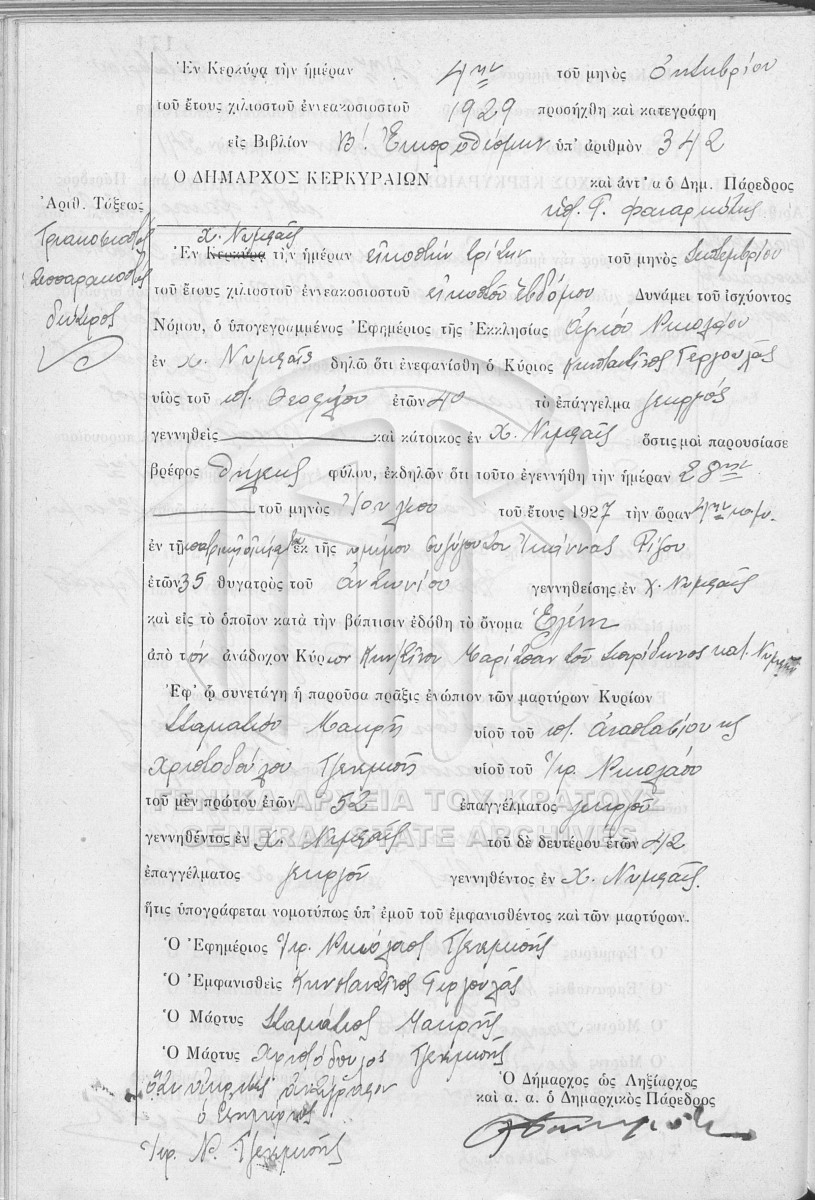 Ἐν Κερκύρᾳ τὴν ἡμέραν 4ην τοῦ μηνὸς Ὀκτωβρίου
τοῦ ἔτους χιλιοστοῦ ἐννεακοσιοστοῦ 1929 προσήχθη καὶ κατεγράφη
εἰς Βιβλίον Β! Ἐκπροθέσμων ὑπ' ἀριθμὸν 342
Ὁ ΔΗΜΑΡΧΟΣ ΚΕΡΚΥΡΑΙΩΝ καὶ ἀντ' α ὁ Δημ. Πάρεδρος
Ἀριθ. Τάξεως
Τριακοσιοστὸς
τεσσαρακοστὸς
δεύτερος
χ. Νυμφαῖς
Ἐν Κερκύρᾳ τὴν ἡμέραν εἰκοστὴν τρίτην τοῦ μηνὸς Σεπτεμβρίου
τοῦ ἔτους χιλιοστοῦ ἐννεακοσιοστοῦ εἰκοστοῦ ἑβδόμου Δυνάμει τοῦ ἰσχύοντος
Νόμου, ὁ ὑπογεγραμμένος Ἐφημέριος τῆς Ἐκκλησίας Ἁγίου Νικολάου
ἐν χ. Νυμφαῖς δηλῶ ὅτι ἐνεφανίσθη ὁ Κύριος Κωνσταντῖνος Γεργουλᾶς
υἱὸς τοῦ ποτ. Θεοφίλου ἐτῶν 40 τὸ ἐπάγγελμα γεωργὸς
γεννηθεὶς καὶ κάτοικος ἐν χ. Νυμφαῖς ὅστις μοὶ παρουσίασε
βρέφος θήλεος φύλου, ἐκδηλῶν ὅτι τοῦτο ἐγεννήθη τὴν ἡμέραν 28ην
τοῦ μηνὸς Ἰουλίου τοῦ ἔτους 1927 τὴν ὥραν 4ην π.μ.
ἐν τῇ ἐκ τῆς νομίμου συζύγου του Ἰωάννας Ρίζου
ἐτῶν 35 θυγατρὸς τοῦ Ἀντωνίου γεννηθείσης ἐν χ. Νυμφαῖς
καὶ εἰς τὸ ὁποῖον κατὰ τὴν βάπτισιν ἐδόθη τὸ ὄνομα Ἑλένη
ἀπὸ τὸν ἀνάδοχον Κύριον Κων/τῖνον τοῦ Σπυρίδωνος
Ἐφ' ᾧ συνετάγη ἡ παροῦσα πρᾶξις ἐνώπιον τῶν μαρτύρων Κυρίων
Σταματίου Μακρῆ υἱοῦ τοῦ ποτ. Ἀναστασίου κ
Χριστοδούλου Τζενεμπῆ υἱοῦ τοῦ Ἱερ. Νικολάου
τοῦ μὲν πρώτου ἐτῶν 52 ἐπαγγέλματος γεωργοῦ
ΓΕΝΙΚΑ ΑΡΧΕΙΑ ΤΟΥ ΚΡΑΤΟΥΣ
GENERAL STATE ARCHIVES
γεννηθέντος ἐν χ. Νυμφαῖς τοῦ δὲ δευτέρου ἐτῶν 42
ἐπαγγέλματος γεωργοῦ γεννηθέντος ἐν χ. Νυμφαῖς.
ἥτις ὑπογράφεται νομοτύπως ὑπ' ἐμοῦ τοῦ ἐμφανισθέντος καὶ τῶν μαρτύρων.
Ὁ Ἐφημέριος Ἱερ. Νικόλαος
Ὁ Ἐμφανισθεὶς Κωνσταντῖνος Γεργουλᾶς
Ὁ Μάρτυς Σταμάτιος Μακρῆς
Ὁ Μάρτυς Χριστόδουλος
Ὅτι ἀκριβὲς ἀντίγραφον
ὁ Ἐφημέριος
Ἱερ. Ν.
Ὁ Δήμαρχος ὡς Ληξίαρχος
καὶ α. α. ὁ Δημαρχικὸς Πάρεδρος